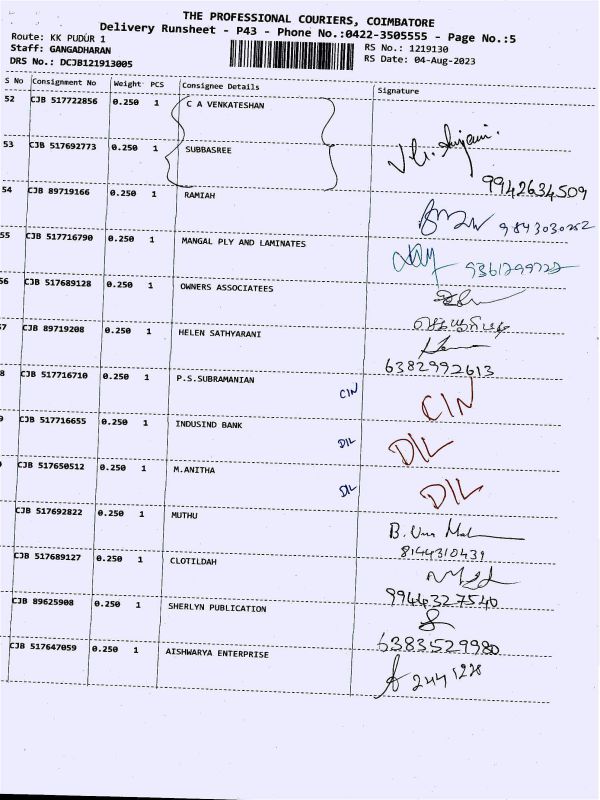 THE PROFESSIONAL COURIERS, COIMBATORE
Delivery Runsheet - P43 - Phone No.:0422-3505555 - Page No.:5
Route: KK PUDUR 1
RS No.: 1219130
Staff: GANGADHARAN
RS Date: 04-Aug-2023
DRS No.: DCJB121913005
S No Consignment No Weight PCS Consignee Details Signature
52 CJB 517722856 0.250 1 C A VENKATESHAN
53 CJB 517692773 0.250 1 SUBBASREE
9942634509
54 CJB 89719166 0.250 1 RAMIAH
9843030252
55 CJB 517716790 0.250 1 MANGAL PLY AND LAMINATES
56 CJB 517689128 0.250 1 OWNERS ASSOCIATEES
57 CJB 89719208 0.250 1 HELEN SATHYARANI
6382992613
8 CJB 517716710 0.250 1 P.S.SUBRAMANIAN CIN CIN
9 CJB 517716655 0.250 1 INDUSIND BANK D/L D/L
CJB 517650512 0.250 1 M.ANITHA D/L D/L
CJB 517692822 0.250 1 MUTHU
8144310439
CJB 517689127 0.250 1 CLOTILDAH
9944327540
CJB 89625908 0.250 1 SHERLYN PUBLICATION
6383529980
CJB 517647059 0.250 1 AISHWARYA ENTERPRISE 2441228